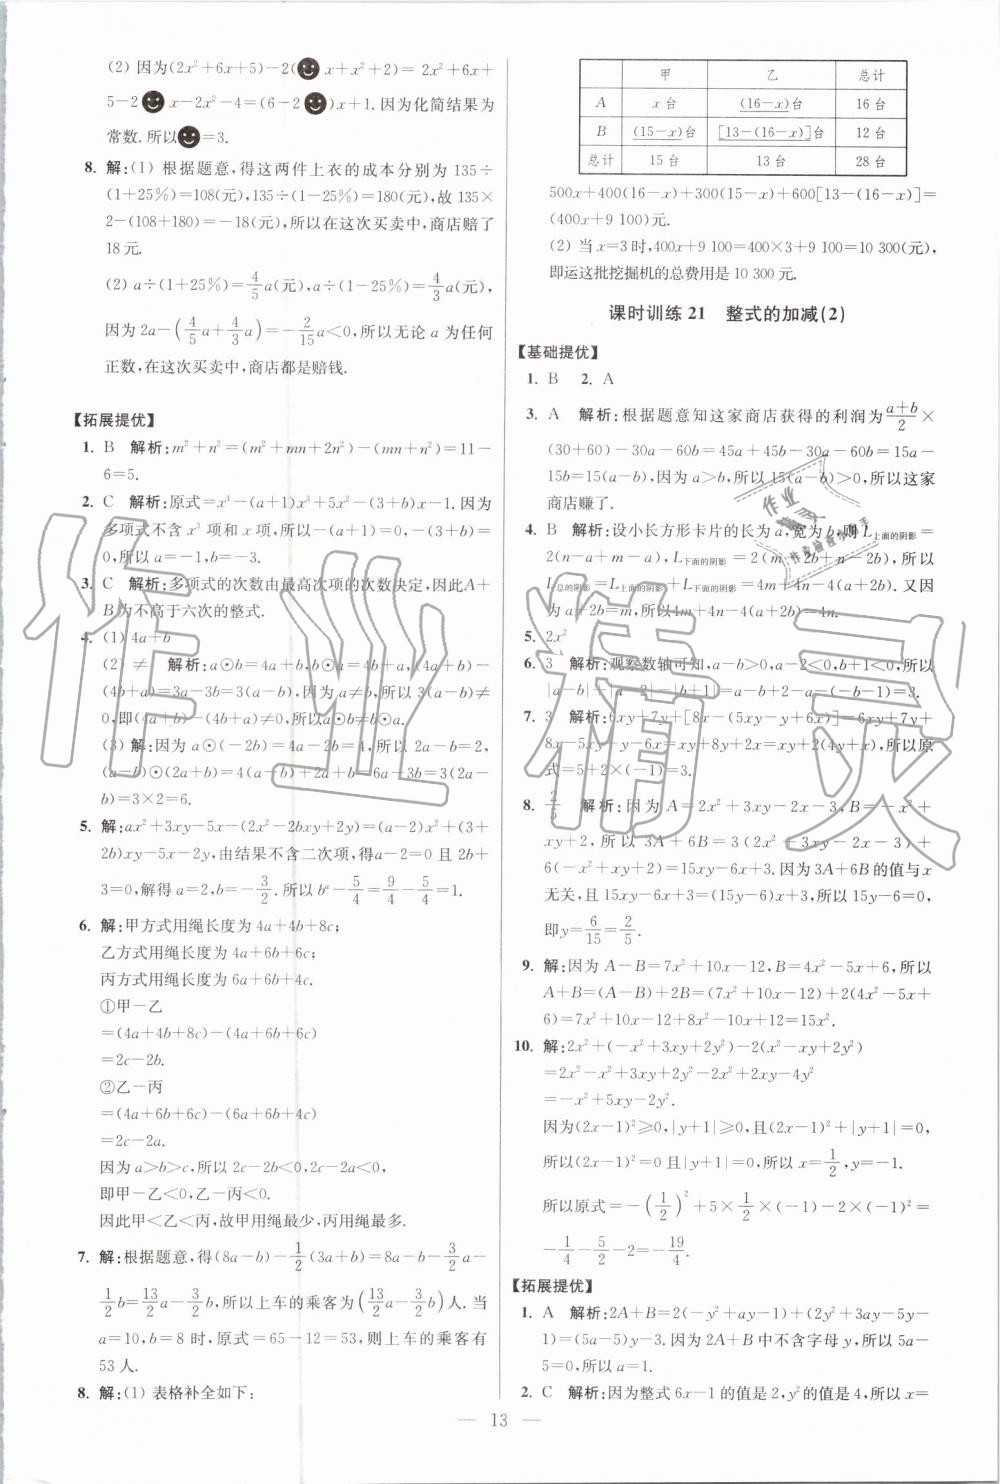 (2) 因为(2x²+6x+5)-2(☻x+x²+2)= 2x²+6x+
5-2☻x-2x²-4=(6-2☻)x+1.因为化简结果为
常数.所以☻=3.
8. 解:(1) 根据题意,得这两件上衣的成本分别为 135÷
(1+25%)=108(元),135÷(1-25%)=180(元),故 135×
2-(108+180)=-18(元),所以在这次买卖中,商店赔了
18元.
(2) a÷(1+25%)=4/5a(元),a÷(1-25%)=4/3a(元),
因为 2a-(4/5a+4/3a)=-2/15a<0,所以无论 a 为任何
正数,在这次买卖中,商店都是赔钱.
【拓展提优】
1. B 解析:m²+n²=(m²+mn+2n²)-(mn+n²)=11-
6=5.
2. C 解析:原式=x⁴-(a+1)x³+5x²-(3+b)x-1.因为
多项式不含 x³ 项和 x 项,所以-(a+1)=0,-(3+b)=
0,所以 a=-1,b=-3.
3. C 解析:多项式的次数由最高次项的次数决定,因此A+
B为不高于六次的整式.
4. (1) 4a+b
(2) ≠ 解析:a⊙b=4a+b,b⊙a=4b+a,(4a+b)-
(4b+a)=3a-3b=3(a-b),因为 a≠b,所以 3(a-b)≠
0,即(4a+b)-(4b+a)≠0,所以a⊙b≠b⊙a.
(3) 解:因为 a⊙(-2b)=4a-2b=4,所以 2a-b=2,
(a-b)⊙(2a+b)=4(a-b)+2a+b=6a-3b=3(2a-
b)=3×2=6.
5. 解:ax²+3xy-5x-(2x²-2bxy+2y)=(a-2)x²+(3+
2b)xy-5x-2y,由结果不含二次项,得a-2=0 且 2b+
3=0,解得 a=2,b=-3/2.所以 bᵃ-5/4=9/4-5/4=1.
6. 解:甲方式用绳长度为 4a+4b+8c;
乙方式用绳长度为 4a+6b+6c;
丙方式用绳长度为 6a+6b+4c.
①甲-乙
=(4a+4b+8c)-(4a+6b+6c)
=2c-2b.
②乙-丙
=(4a+6b+6c)-(6a+6b+4c)
=2c-2a.
因为 a>b>c,所以 2c-2b<0,2c-2a<0.
即甲-乙<0,乙-丙<0.
因此甲<乙<丙,故甲用绳最少,丙用绳最多.
7. 解:根据题意,得(8a-b)-1/2(3a+b)=8a-b-3/2a-
1/2b=13/2a-3/2b,所以上车的乘客为(13/2a-3/2b)人.当
a=10,b=8 时,原式=65-12=53,则上车的乘客有
53人.
8. 解:(1) 表格补全如下:
甲 乙 总计
A x台 (16-x)台 16台
B (15-x)台 [13-(16-x)]台 12台
总计 15台 13台 28台
500x+400(16-x)+300(15-x)+600[13-(16-x)]=
(400x+9 100)元.
(2) 当 x=3时,400x+9 100=400×3+9 100=10 300(元),
即运这批挖掘机的总费用是 10 300元.
课时训练 21 整式的加减(2)
【基础提优】
1. B 2. A
3. A 解析:根据题意知这家商店获得的利润为(a+b)/2×
(30+60)-30a-60b=45a+45b-30a-60b=15a-
15b=15(a-b),因为 a>b,所以 15(a-b)>0,所以这家
商店赚了.
4. B 解析:设小长方形卡片的长为 a,宽为 b,则 L上面的阴影=
2(n-a+m-a),L下面的阴影=2(m-2b+n-2b),所以
L总的阴影=L上面的阴影+L下面的阴影=4m+4n-4(a+2b).又因
为 a+2b=m,所以4m+4n-4(a+2b)=4n.
5. 2x²
6. 3 解析:观察数轴可知,a-b>0,a-2<0,b+1<0,所以
|a-b|+|a-2|-|b+1|=a-b+2-a-(-b-1)=3.
7. 3 解析:6xy+7y+[8x-(5xy-y+6x)]=6xy+7y+
8x-5xy+y-6x=xy+2x+8y=xy+2(4y+x),所以原
式=5+2×(-1)=3.
8. 2/5 解析:因为 A=2x²+3xy-2x-3,B=-x²+
xy+2,所以 3A+6B=3(2x²+3xy-2x-3)+
6(-x²+xy+2)=15xy-6x+3.因为3A+6B的值与x
无关,且 15xy-6x+3=(15y-6)x+3,所以15y-6=0,
即y=6/15=2/5.
9. 解:因为 A-B=7x²+10x-12,B=4x²-5x+6,所以
A+B=(A-B)+2B=(7x²+10x-12)+2(4x²-5x+
6)=7x²+10x-12+8x²-10x+12=15x².
10. 解:2x²+(-x²+3xy+2y²)-2(x²-xy+2y²)
=2x²-x²+3xy+2y²-2x²+2xy-4y²
=-x²+5xy-2y².
因为(2x-1)²≥0,|y+1|≥0,且(2x-1)²+|y+1|=0,
所以(2x-1)²=0且|y+1|=0,所以 x=1/2,y=-1.
所以原式=-(1/2)²+5×1/2×(-1)-2×(-1)²=
-1/4-5/2-2=-19/4.
【拓展提优】
1. A 解析:2A+B=2(-y²+ay-1)+(2y²+3ay-5y-
1)=(5a-5)y-3.因为 2A+B 中不含字母 y,所以 5a-
5=0,所以 a=1.
2. C 解析:因为整式 6x-1 的值是 2,y²的值是 4,所以 x=
— 13 —
作业精灵